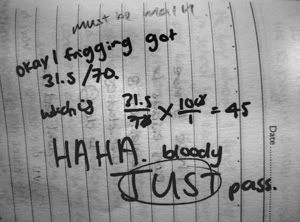 must be
okay I frigging got
31.5 / 70.
which is 31.5/70 × 100/1 = 45
HAHA. bloody
JUST pass.
Date